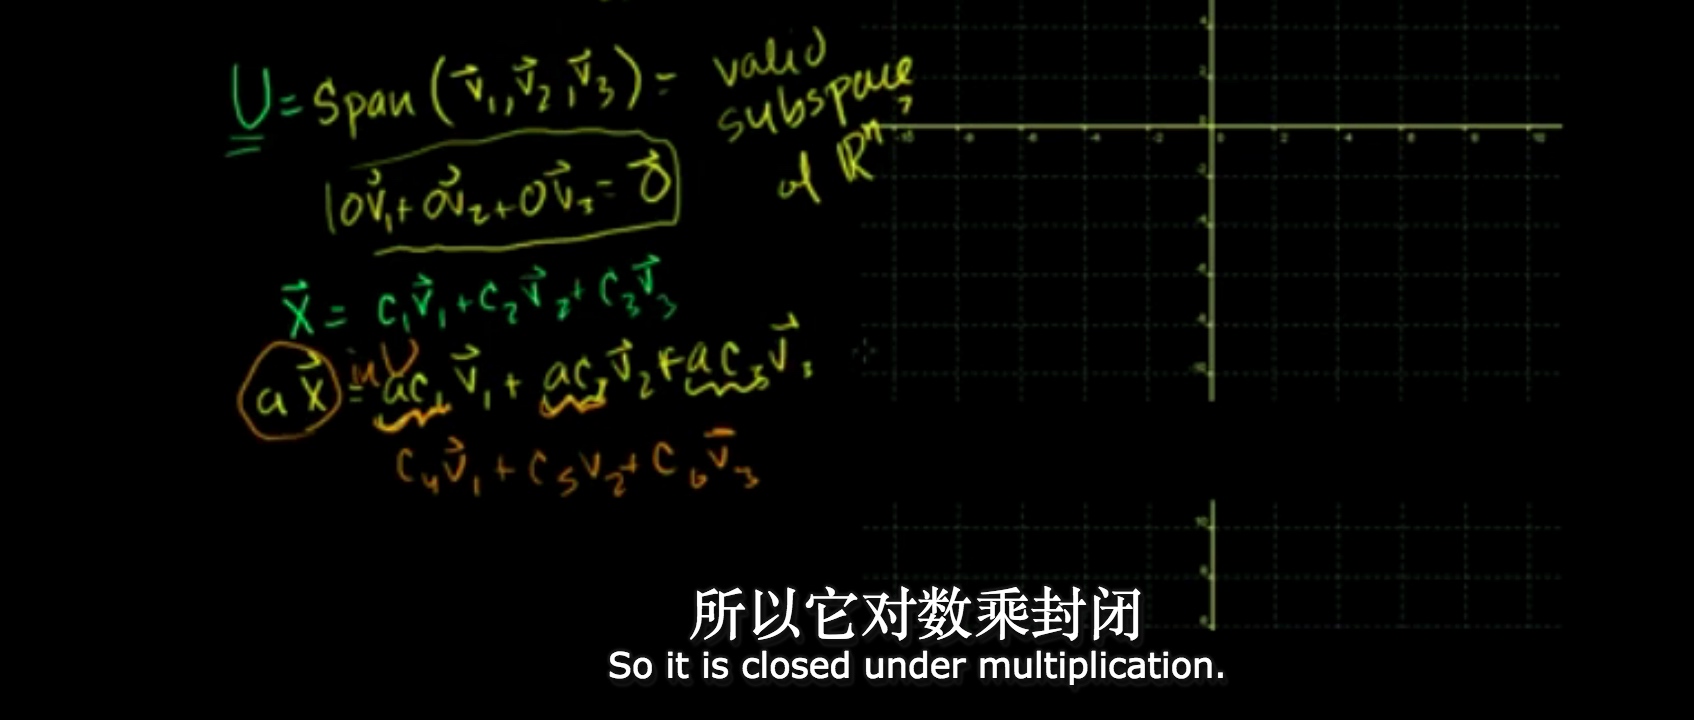 U = Span (v⃗₁, v⃗₂, v⃗₃) = valid subspace of ℝⁿ?
0v⃗₁ + 0v⃗₂ + 0v⃗₃ = 0⃗
x⃗ = c₁v⃗₁ + c₂v⃗₂ + c₃v⃗₃
in U
ax⃗ = ac₁v⃗₁ + ac₂v⃗₂ + ac₃v⃗₃
c₄v⃗₁ + c₅v₂ + c₆v⃗₃
所以它对数乘封闭
So it is closed under multiplication.